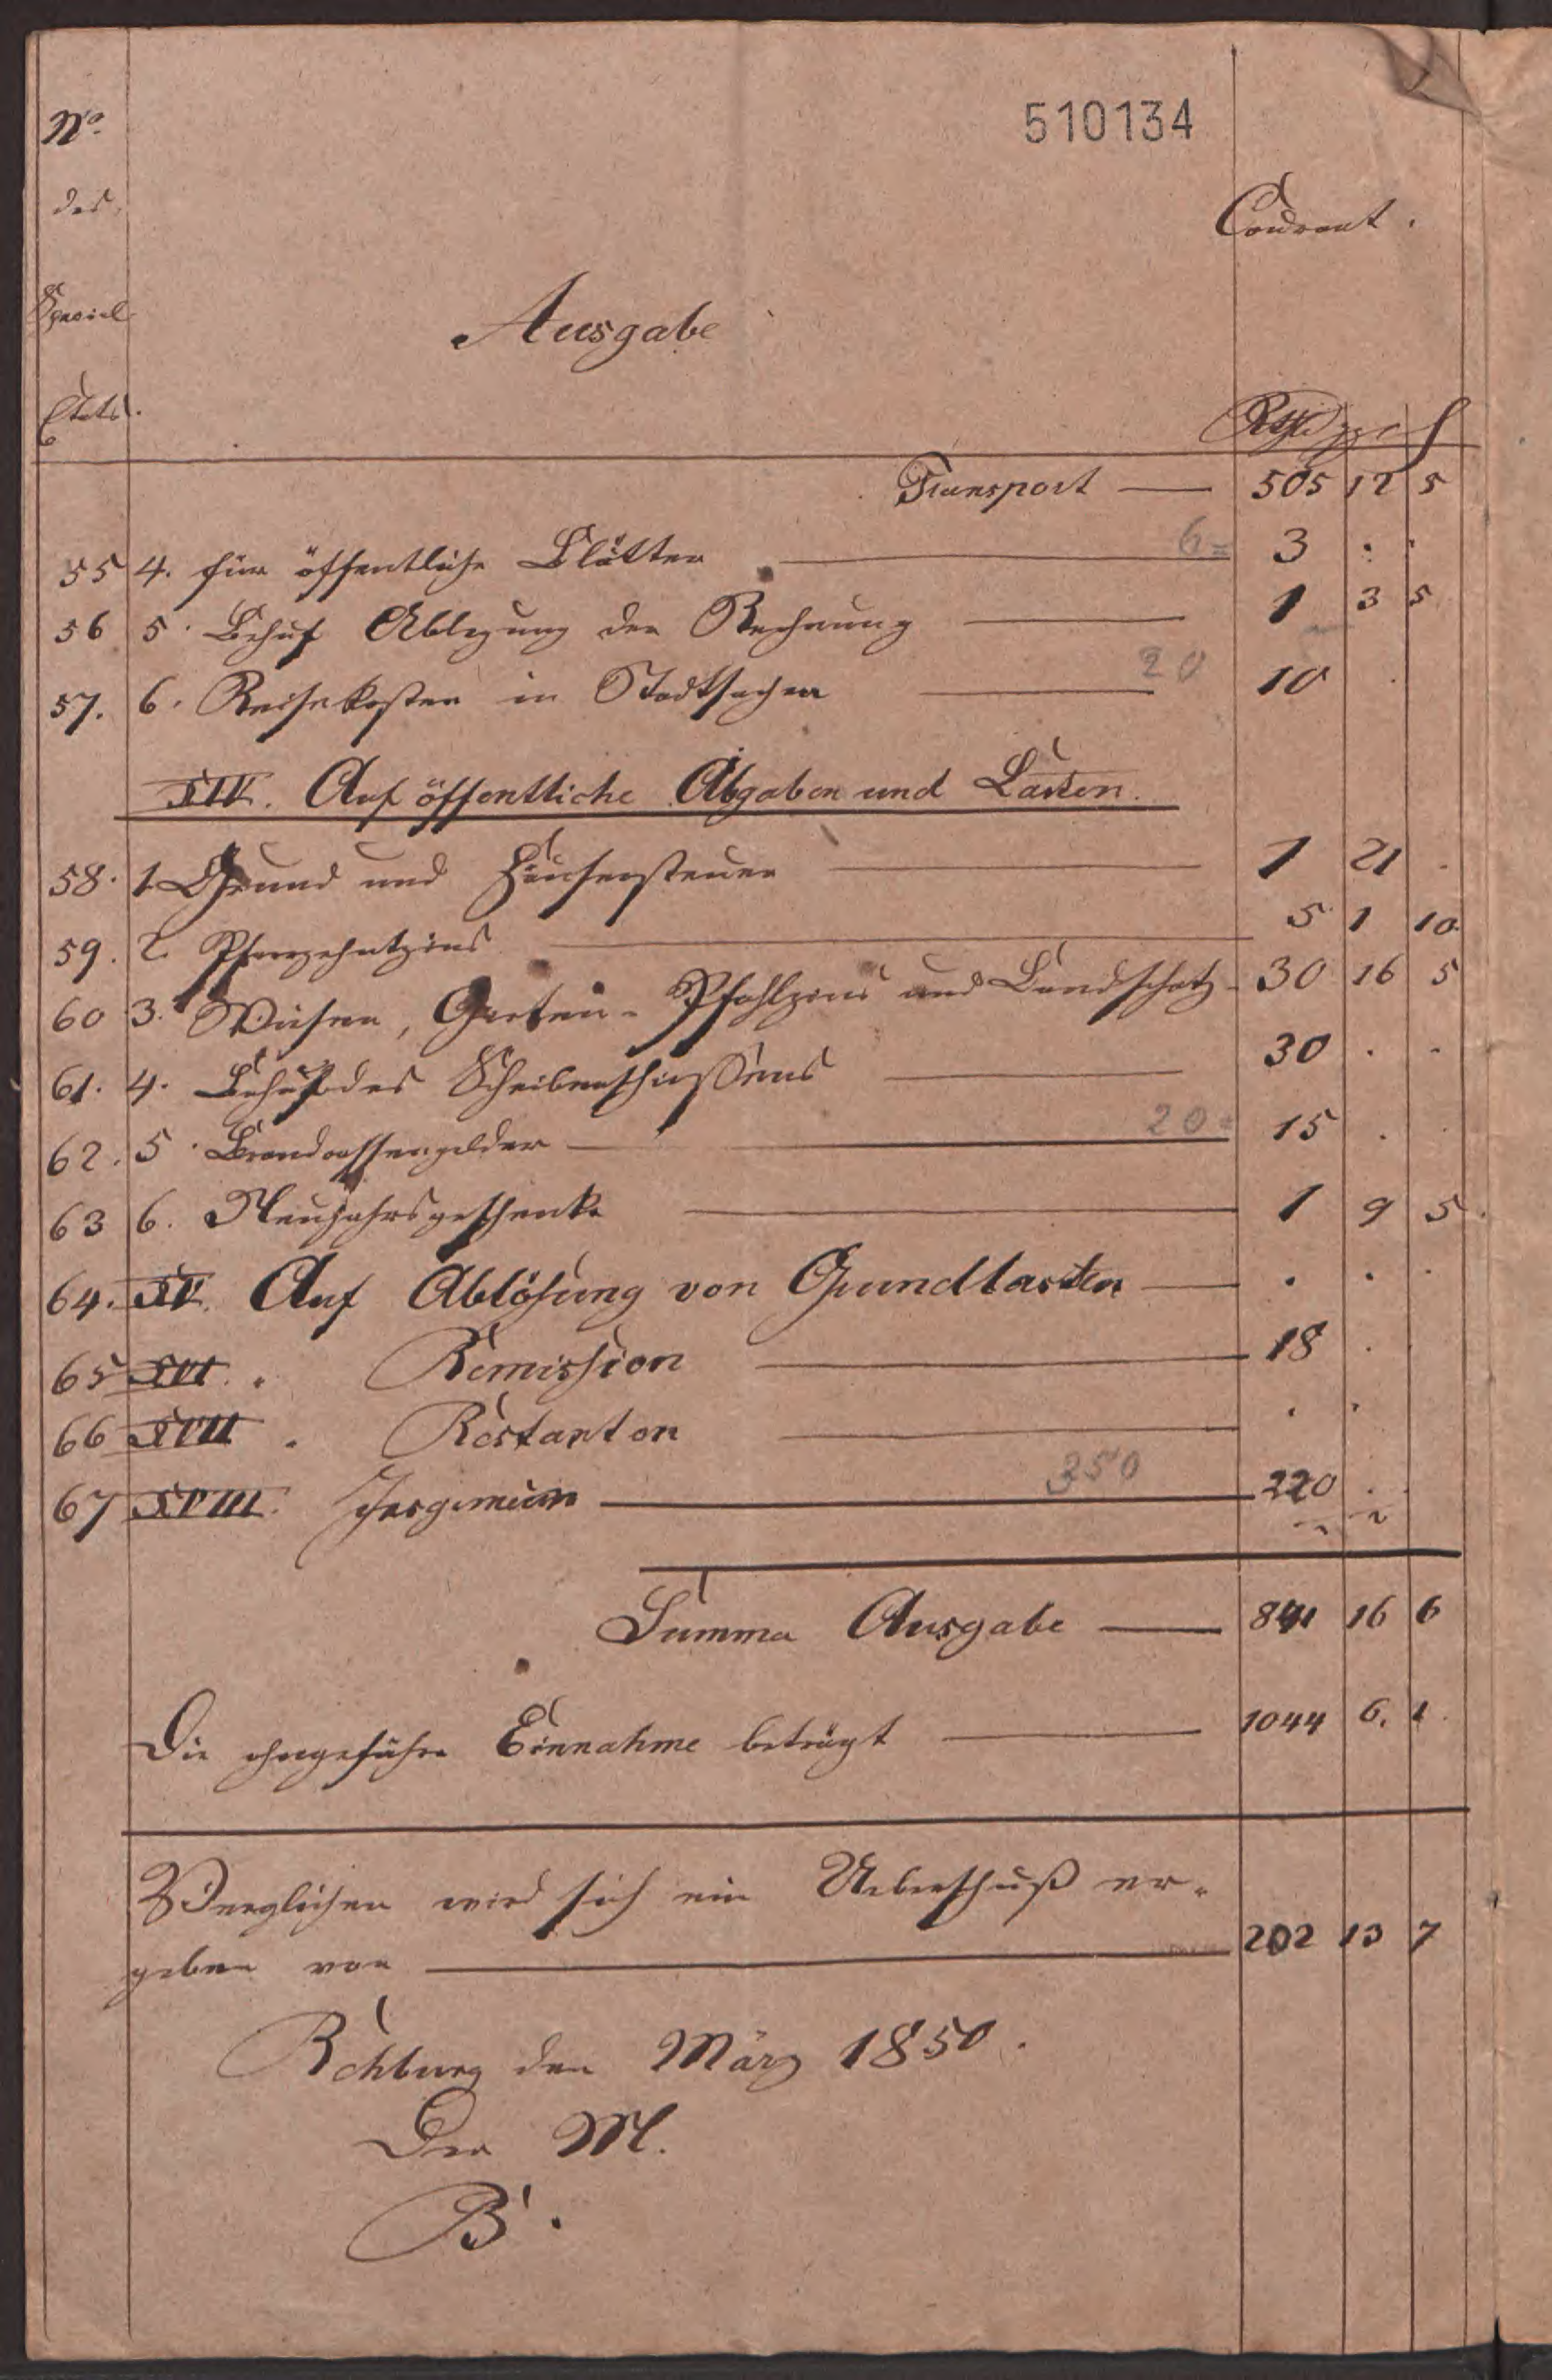 510134
No.
des
Special
Etats.
Ausgabe
Courant.
Rthlr ggr ₰
Transport — 505 12 5
55 4. für öffentliche Blätter — 6= 3 . .
56 5. Behuf Ablegung der Rechnung — 1 3 5
57. 6. Reisekosten in Stadtsachen — 20 10 .
XIV. Auf öffentliche Abgaben und Lasten.
58. 1. Grund und Häusersteuer — 1 21 .
59. 2. Pfarrzehntzins — 5 1 10.
60 3. Wiesen, Garten- Pfahlzins und Landschatz - 30 16 5
61. 4. Behuf des Scheibenschießens — 30 . .
62. 5. Brandcassengelder — 20= 15 . .
63 6. Neujahrsgeschenke — 1 9 5.
64. XV. Auf Ablösung von Grundlasten — . . .
65 XVI. . Remission — 18 . .
66 XVII . Restanten — . .
67 XVIII. Insgemein — 350 220 . .
Summa Ausgabe — 841 16 6
Die ohngefähre Einnahme beträgt — 1044 6. 1.
Verglichen wird sich ein Ueberschuß er-
geben von — 202 13 7
Rehburg den März 1850.
Der M.
B.